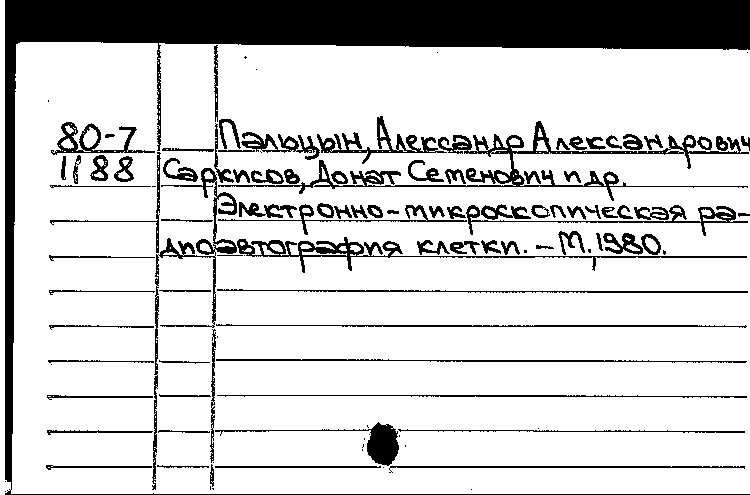 80-7 Пальцын, Александр Александрович
1188 Саркисов, Донат Семенович и др.
Электронно-микроскопическая ра-
диоавтография клетки. – М., 1980.